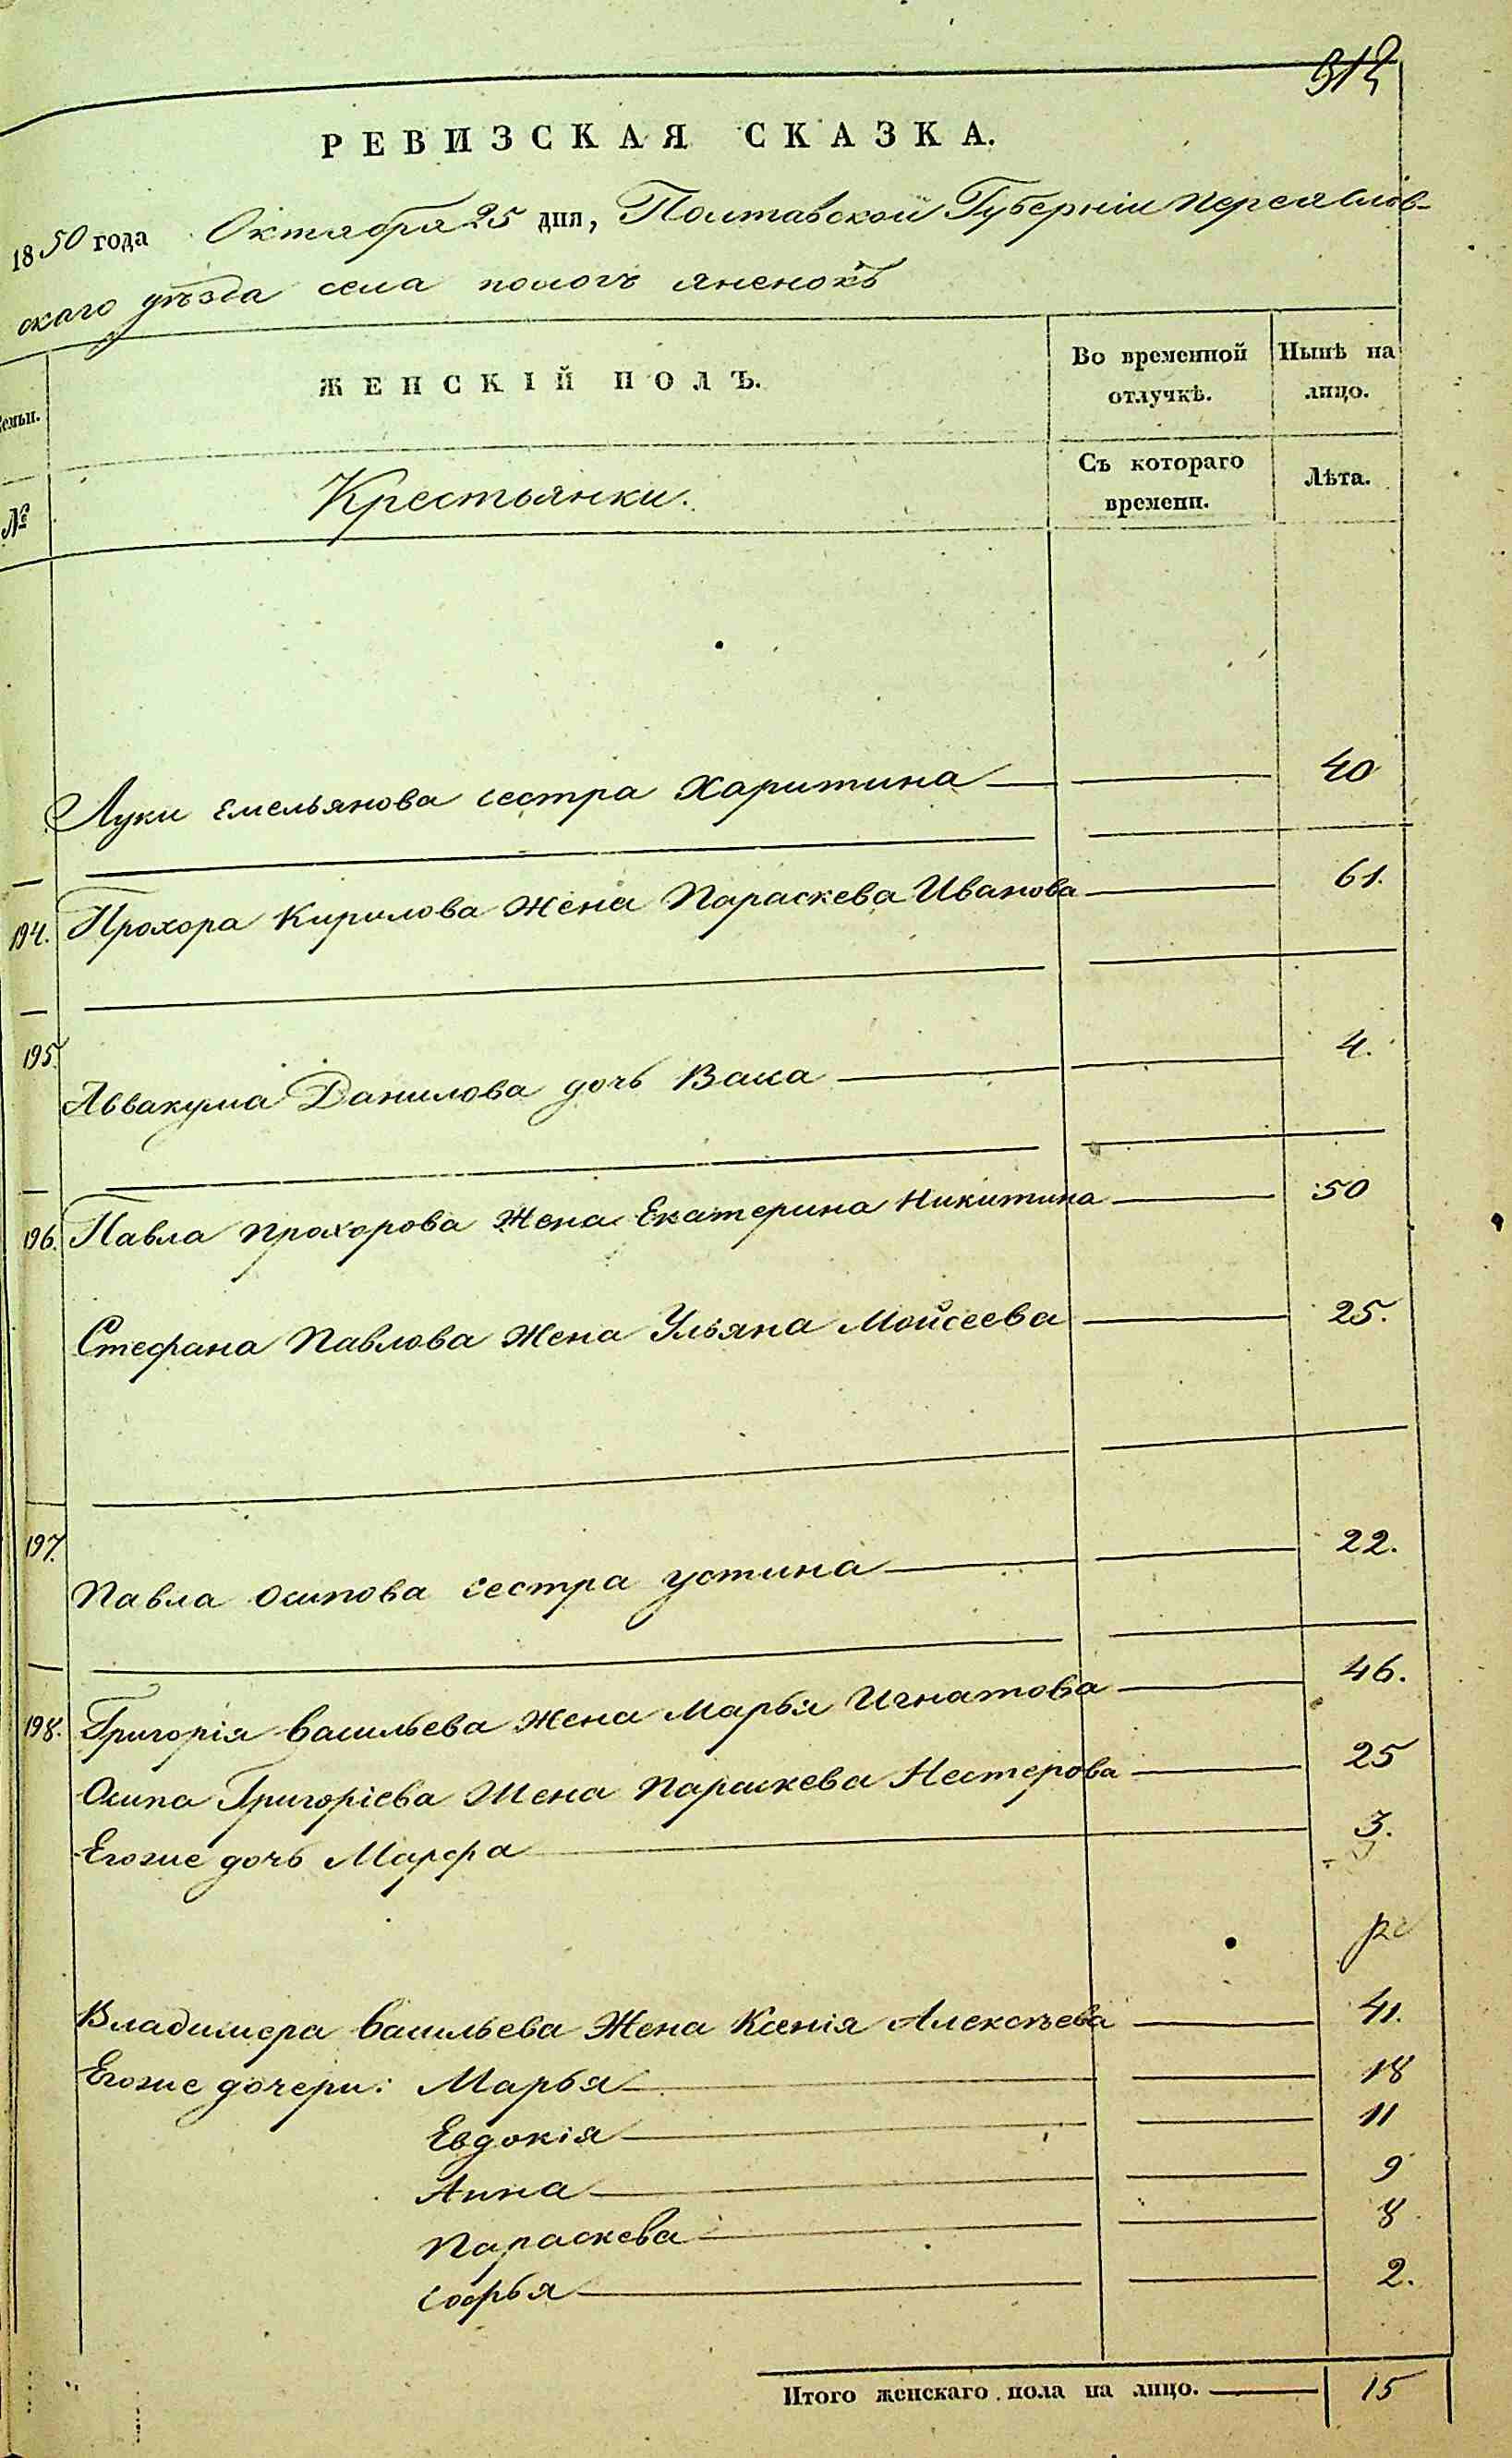 312
РЕВИЗСКАЯ СКАЗКА.
1850 года Октября 25 дня, Полтавской Губерніи Переяслов-
скаго уѣзда села пологъ яненокъ
Семьи.
ЖЕНСКІЙ ПОЛЪ.
Во временной отлучкѣ.
Нынѣ на лицо.
№
Крестьянки.
Съ котораго времени.
Лѣта.
Луки Емельянова сестра Харитина 40
194. Прохора Кирилова Жена Параскева Иванова 61.
195.
Аввакума Данилова дочь Васа 4.
196. Павла Прохорова Жена Екатерина Никитина 50
Стефана Павлова Жена Ульяна Мойсеева 25.
197.
Павла Осипова сестра устина 22.
198. Григорія Васильева Жена Марья Игнатова 46.
Осипа Григоріева Жена Параскева Нестерова 25
Егоже дочь Марфа 3.
Владимера Васильева Жена Ксенія Алексѣева 41.
Егоже дочери: Марья 18
Евдокія 11
Анна 9
Параскева 8
софья 2.
Итого женскаго пола на лицо. 15